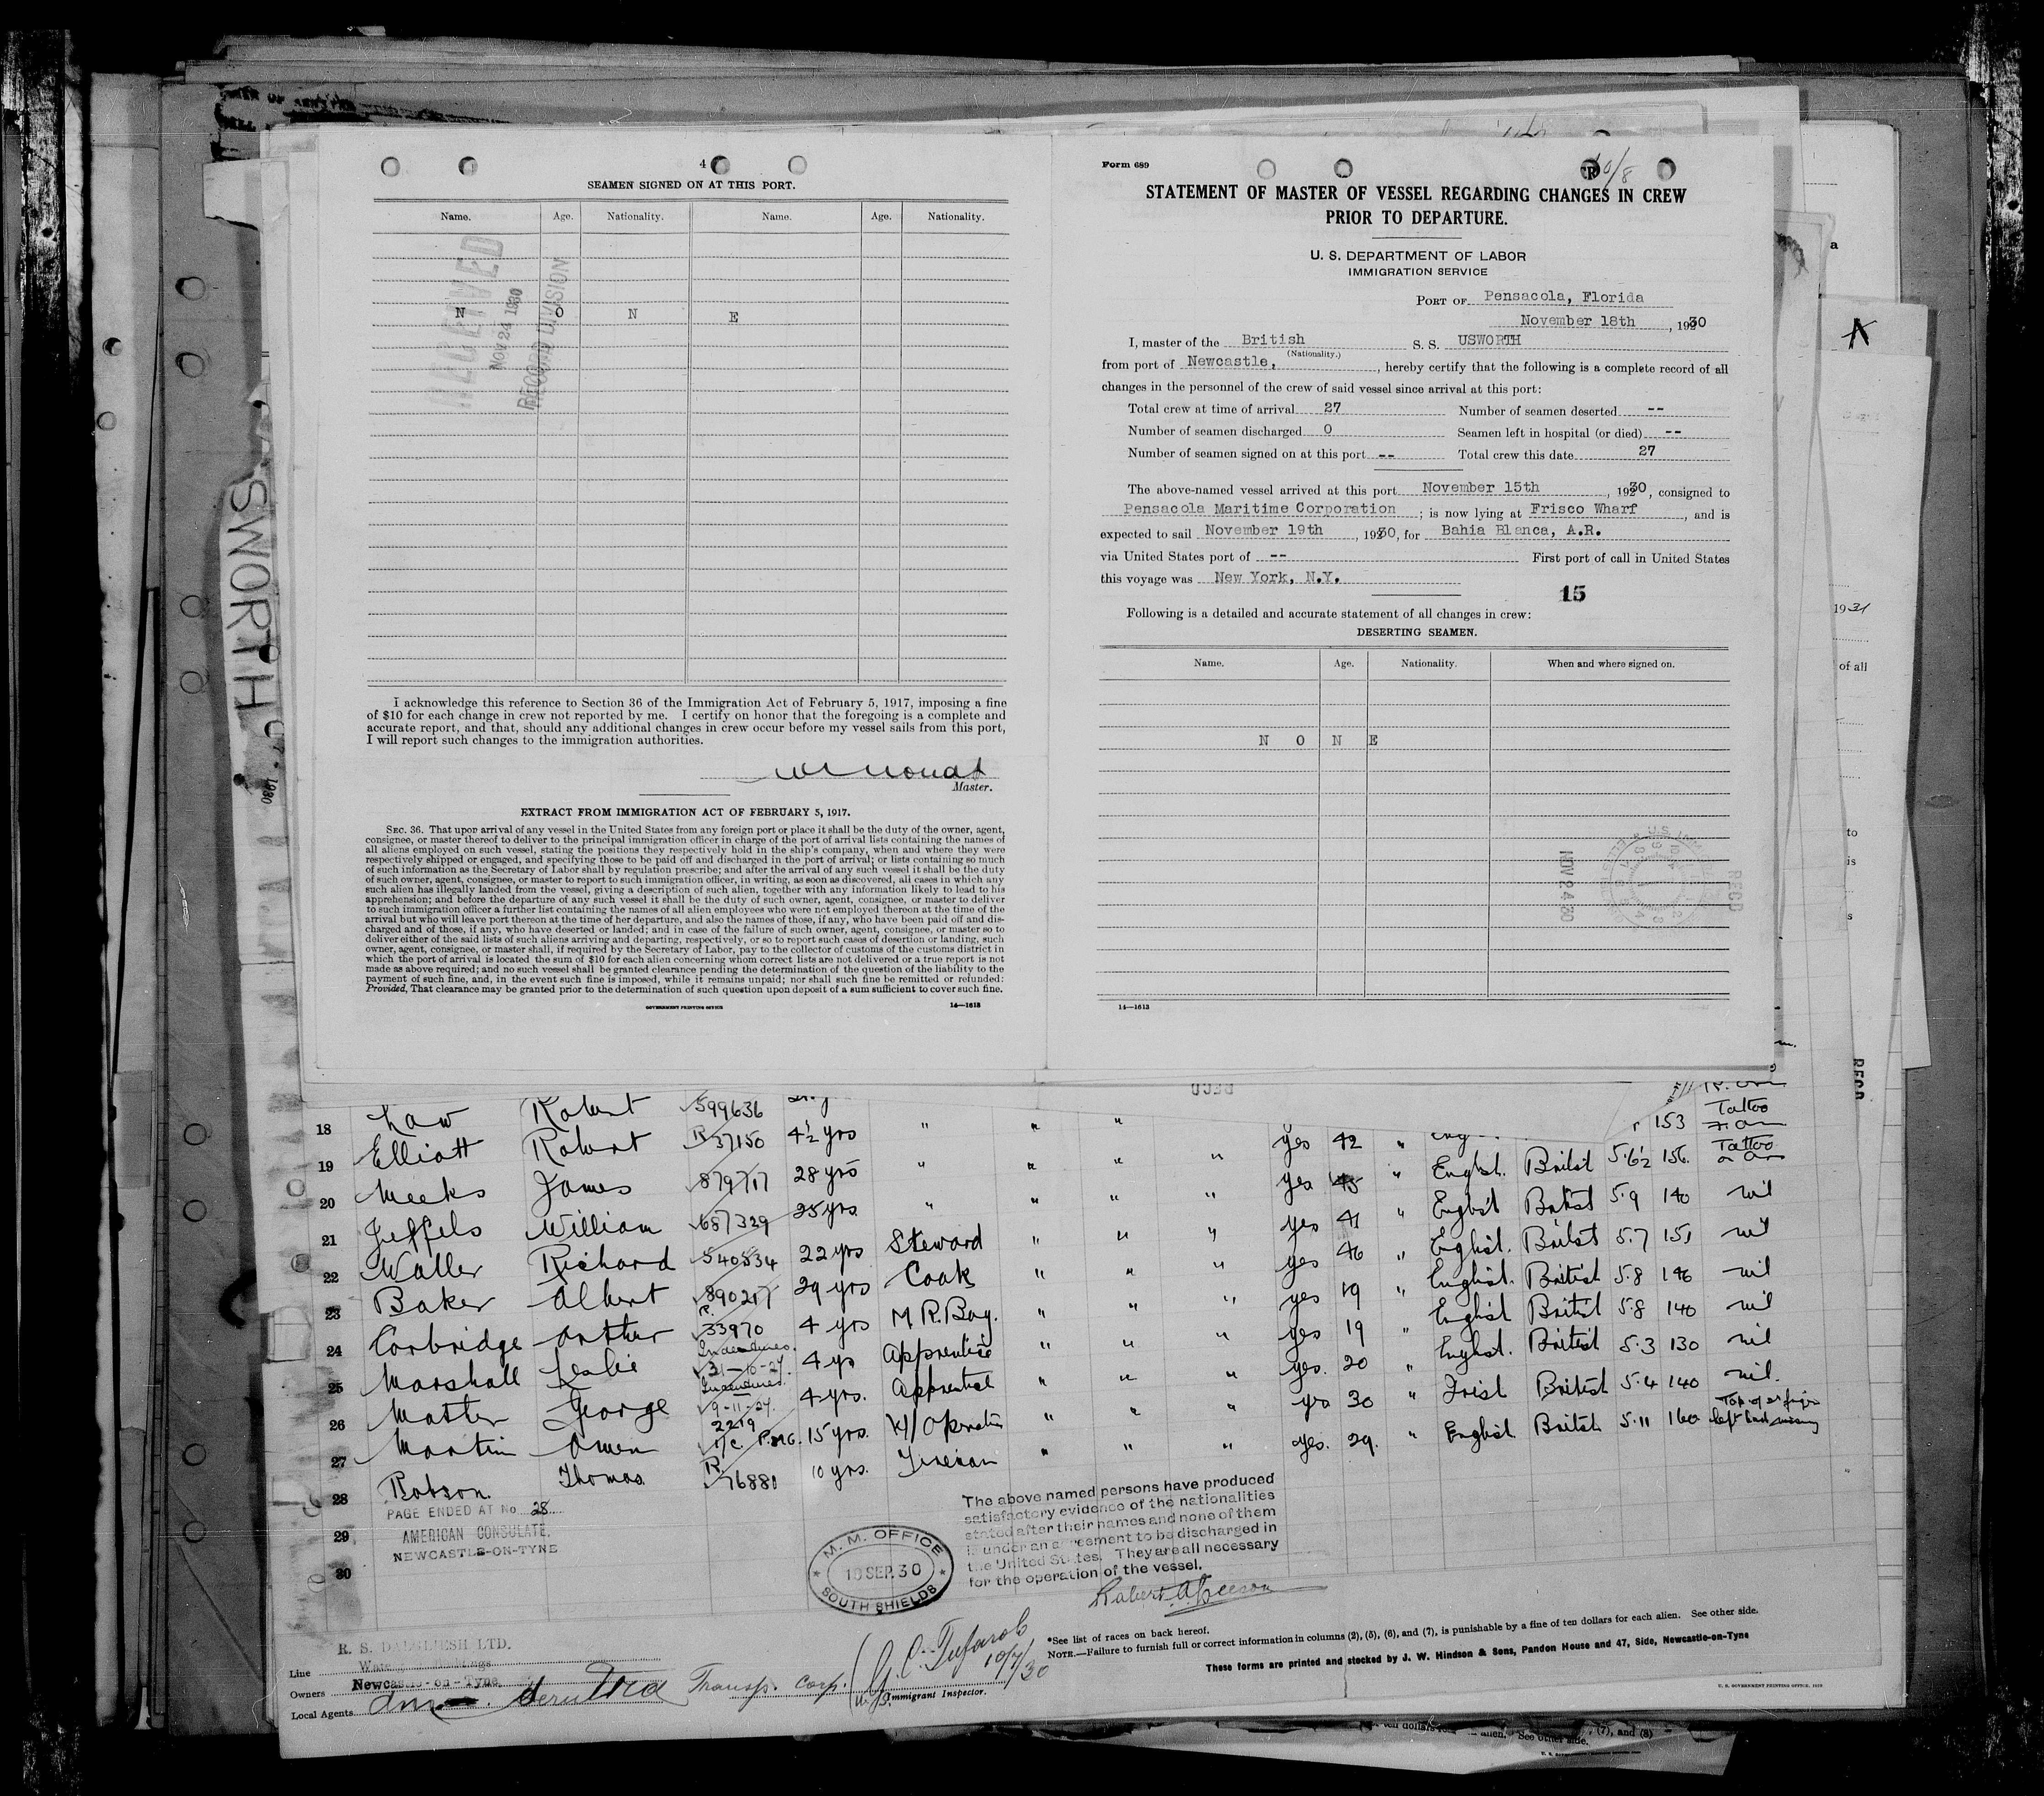 4
SEAMEN SIGNED ON AT THIS PORT.
Name. Age. Nationality. Name. Age. Nationality.
N O N E
NOV 24 1930
RECORD DIVISION
I acknowledge this reference to Section 36 of the Immigration Act of February 5, 1917, imposing a fine
of $10 for each change in crew not reported by me. I certify on honor that the foregoing is a complete and
accurate report, and that, should any additional changes in crew occur before my vessel sails from this port,
I will report such changes to the immigration authorities.
Master.
EXTRACT FROM IMMIGRATION ACT OF FEBRUARY 5, 1917.
SEC. 36. That upon arrival of any vessel in the United States from any foreign port or place it shall be the duty of the owner, agent,
consignee, or master thereof to deliver to the principal immigration officer in charge of the port of arrival lists containing the names of
all aliens employed on such vessel, stating the positions they respectively hold in the ship's company, when and where they were
respectively shipped or engaged, and specifying those to be paid off and discharged in the port of arrival; or lists containing so much
of such information as the Secretary of Labor shall by regulation prescribe; and after the arrival of any such vessel it shall be the duty
of such owner, agent, consignee, or master to report to such immigration officer, in writing, as soon as discovered, all cases in which any
such alien has illegally landed from the vessel, giving a description of such alien, together with any information likely to lead to his
apprehension; and before the departure of any such vessel it shall be the duty of such owner, agent, consignee, or master to deliver
to such immigration officer a further list containing the names of all alien employees who were not employed thereon at the time of the
arrival but who will leave port thereon at the time of her departure, and also the names of those, if any, who have been paid off and dis-
charged and of those, if any, who have deserted or landed; and in case of the failure of such owner, agent, consignee, or master so to
deliver either of the said lists of such aliens arriving and departing, respectively, or so to report such cases of desertion or landing, such
owner, agent, consignee, or master shall, if required by the Secretary of Labor, pay to the collector of customs of the customs district in
which the port of arrival is located the sum of $10 for each alien concerning whom correct lists are not delivered or a true report is not
made as above required; and no such vessel shall be granted clearance pending the determination of the question of the liability to the
payment of such fine, and, in the event such fine is imposed, while it remains unpaid; nor shall such fine be remitted or refunded:
Provided, That clearance may be granted prior to the determination of such question upon deposit of a sum sufficient to cover such fine.
GOVERNMENT PRINTING OFFICE 14—1613
Form 689
10/8
STATEMENT OF MASTER OF VESSEL REGARDING CHANGES IN CREW
PRIOR TO DEPARTURE.
U. S. DEPARTMENT OF LABOR
IMMIGRATION SERVICE
PORT OF Pensacola, Florida
November 18th, 1930
I, master of the British S. S. USWORTH
(Nationality.)
from port of Newcastle, , hereby certify that the following is a complete record of all
changes in the personnel of the crew of said vessel since arrival at this port:
Total crew at time of arrival 27 Number of seamen deserted --
Number of seamen discharged 0 Seamen left in hospital (or died) --
Number of seamen signed on at this port -- Total crew this date 27
The above-named vessel arrived at this port November 15th, 1930, consigned to
Pensacola Maritime Corporation; is now lying at Frisco Wharf, and is
expected to sail November 19th, 1930, for Bahia Blanca, A.R.
via United States port of -- First port of call in United States
this voyage was New York, N.Y.
15
Following is a detailed and accurate statement of all changes in crew:
DESERTING SEAMEN.
Name. Age. Nationality. When and where signed on.
N O N E
NOV 24 30
RECD
14—1613
SWORTH
1930
1931
of all
to
is
RECD
18 Law Robert 599636 153 Tattoo
19 Elliott Robert R 37150 4½ yrs " " " yes 42 " English British 5·6½ 156 Tattoo
20 Meeks James 879717 28 yrs " " " " yes 45 " English British 5·9 140 nil
21 Jeffels William 687329 25 yrs " " " " yes 41 " English British 5·7 151 nil
22 Waller Richard 540534 22 yrs Steward " " " yes 46 " English British 5·8 146 nil
23 Baker Albert 890217 29 yrs Cook " " " yes 19 " English British 5·8 140 nil
24 Corbridge Arthur R. 33970 4 yrs M R. Boy. " " " yes 19 " English British 5·3 130 nil
25 Marshall Leslie Indentures. 31-10-27. 4 yrs Apprentice " " " yes. 20 " Irish British 5·4 140 nil.
26 Matter George Indentures. 9-11-27. 4 yrs. Apprentice " " " yes 30 " English British 5·11 160 Top of 2nd finger left hand missing
27 Martin Owen 2219 P.M.G. 15 yrs. W/Operator " " " yes. 29.
28 Robson Thomas R. 76880 10 yrs. Fireman " " "
29
30
PAGE ENDED AT No. 28
AMERICAN CONSULATE,
NEWCASTLE-ON-TYNE
M. M. OFFICE
10 SEP. 30
SOUTH SHIELDS
The above named persons have produced
satisfactory evidence of the nationalities
stated after their names and none of them
is under an agreement to be discharged in
the United States. They are all necessary
for the operation of the vessel.
R. S. DALGLIESH LTD.
Line
Owners Newcastle-on-Tyne.
Local Agents Transp. Corp.
10/7/30
Immigrant Inspector.
*See list of races on back hereof.
NOTE.—Failure to furnish full or correct information in columns (2), (5), (6), and (7), is punishable by a fine of ten dollars for each alien. See other side.
These forms are printed and stocked by J. W. Hindson & Sons, Pandon House and 47, Side, Newcastle-on-Tyne
U. S. GOVERNMENT PRINTING OFFICE
alien. See other side. (7), and (8)